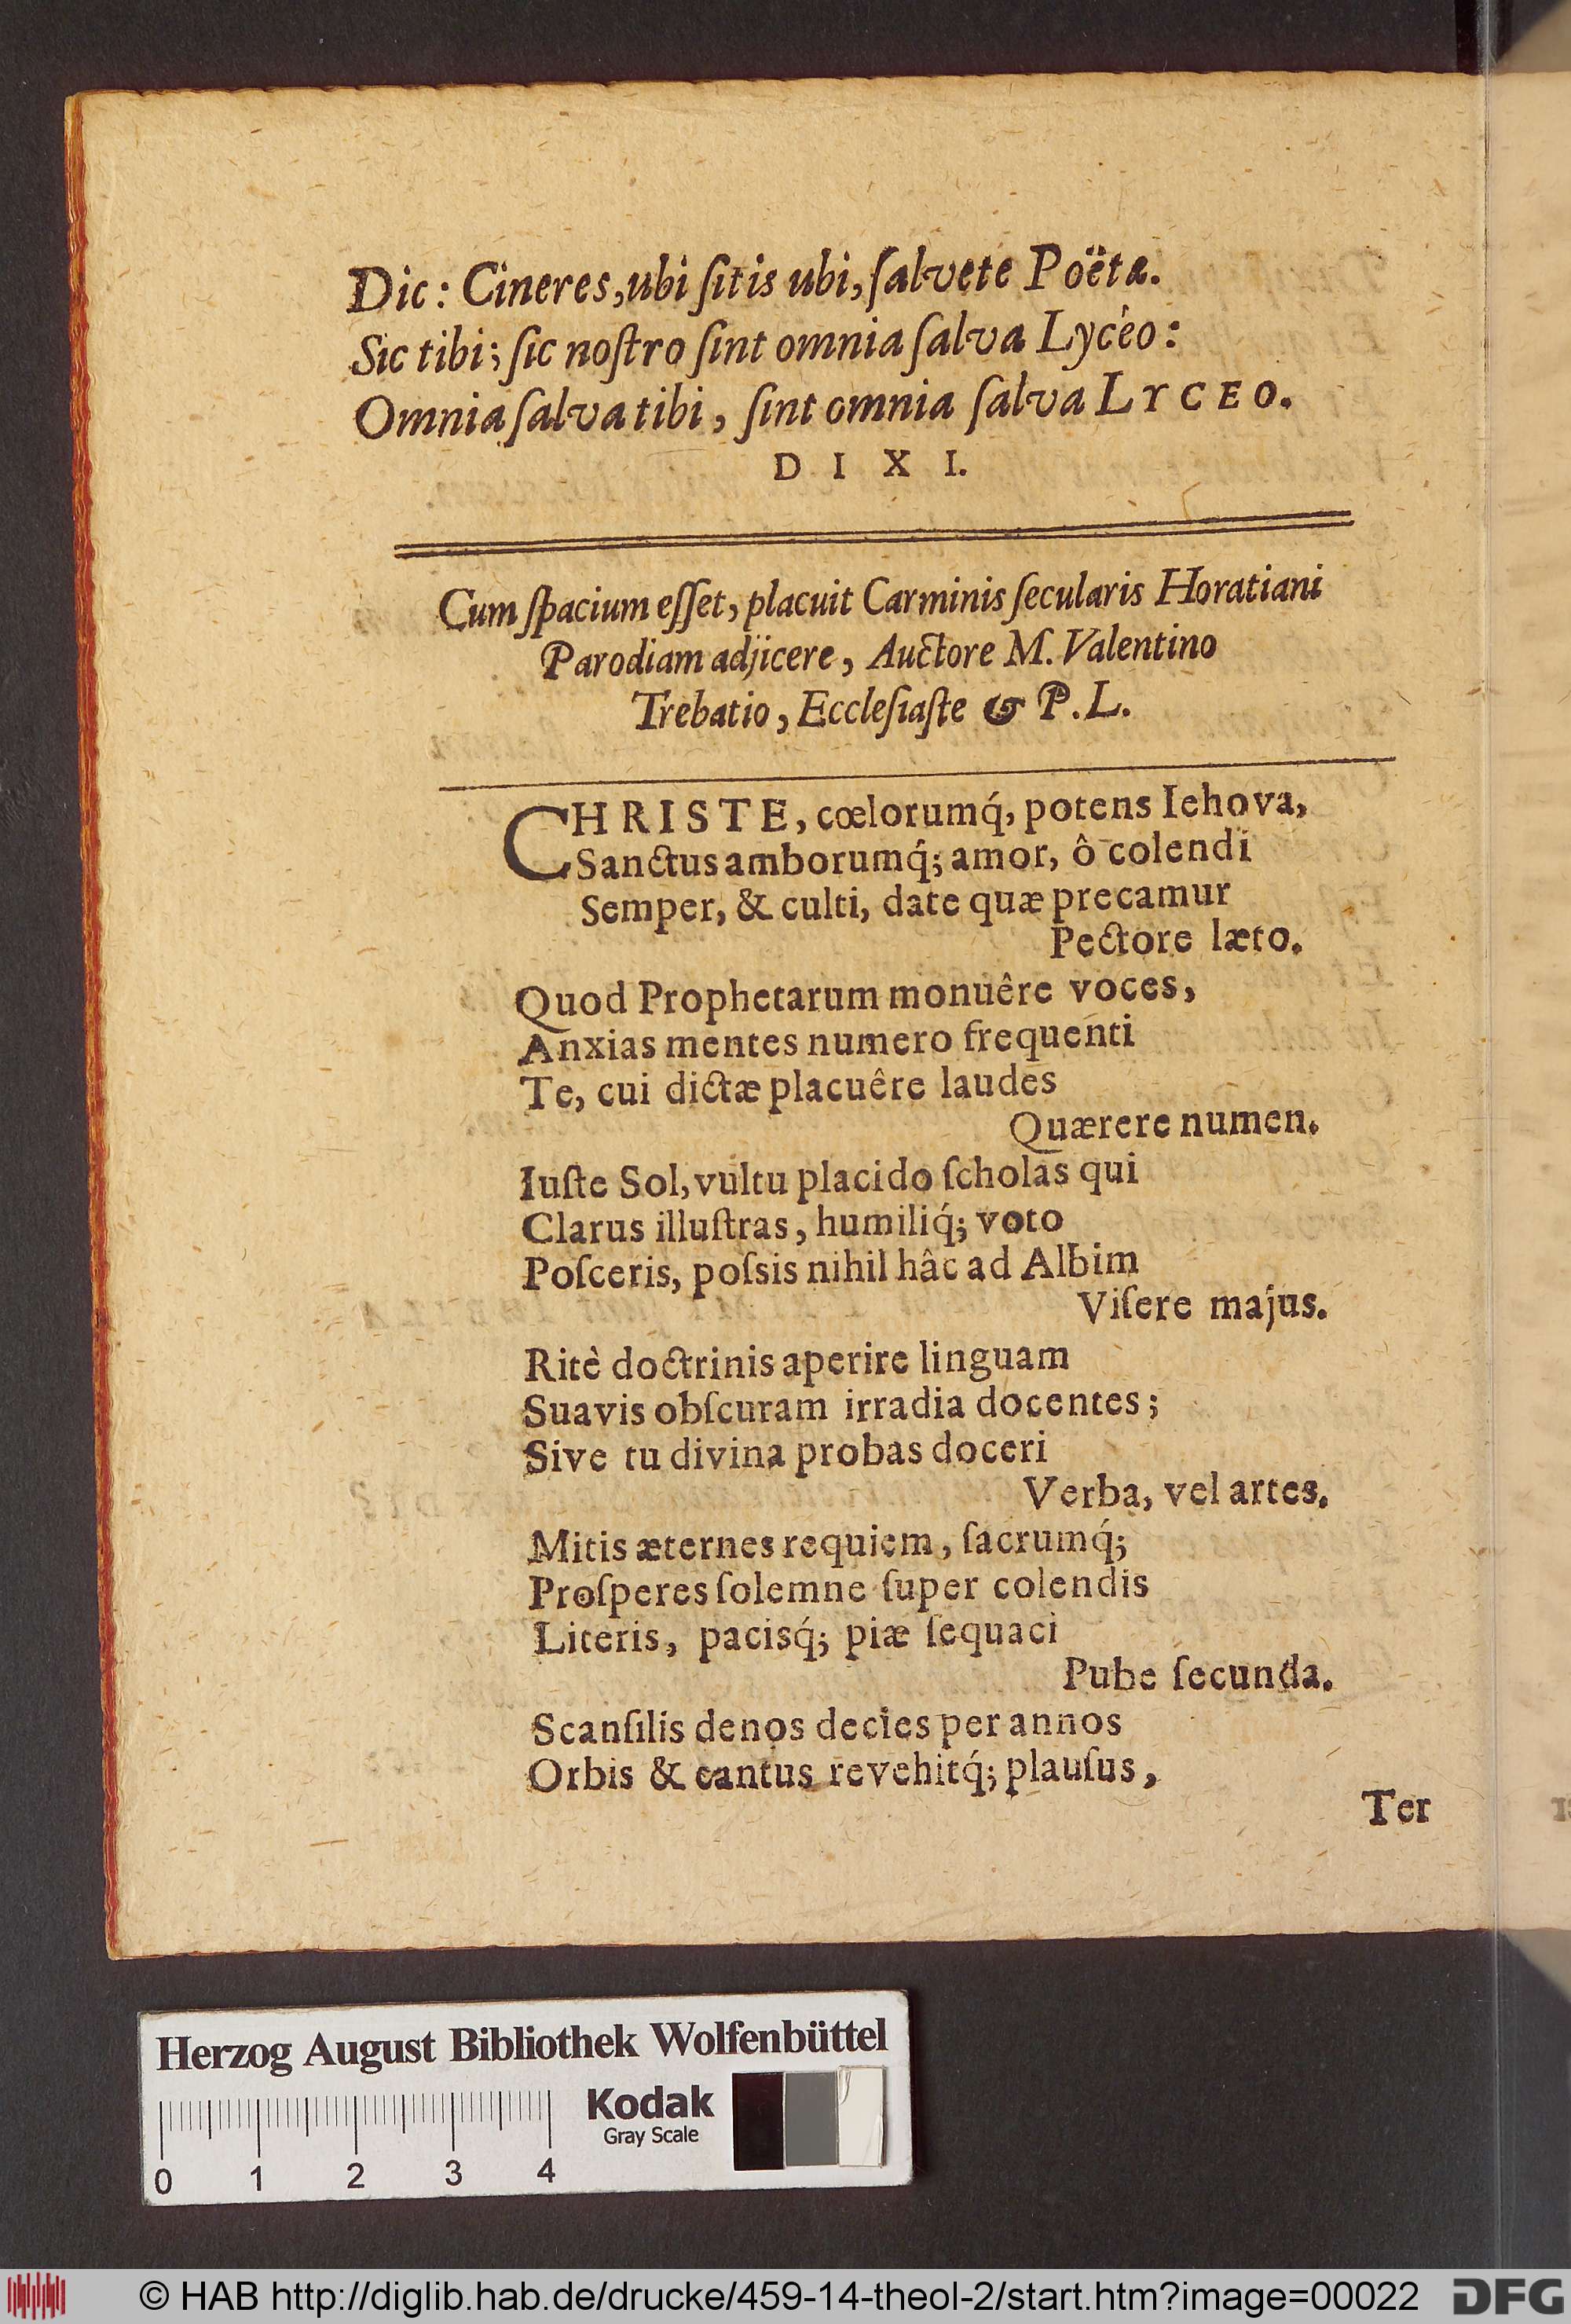 Dic: Cineres, ubi ſitis ubi, ſalvete Poëtæ.
Sic tibi; ſic noſtro ſint omnia ſalva Lycéo:
Omnia ſalva tibi, ſint omnia ſalva LYCEO.
DIXI.
Cum ſpacium eſſet, placuit Carminis ſecularis Horatiani
Parodiam adjicere, Auctore M. Valentino
Trebatio, Eccleſiaſte & P. L.
CHRISTE, cœlorumq́, potens Iehova,
Sanctus amborumq́; amor, ô colendi
Semper, & culti, date quæ precamur
Pectore læto.
Quod Prophetarum monuêre voces,
Anxias mentes numero frequenti
Te, cui dictæ placuêre laudes
Quærere numen.
Iuſte Sol, vultu placido ſcholas qui
Clarus illuſtras, humiliq́; voto
Poſceris, poſsis nihil hâc ad Albim
Viſere majus.
Ritè doctrinis aperire linguam
Suavis obſcuram irradia docentes;
Sive tu divina probas doceri
Verba, vel artes.
Mitis æternes requiem, ſacrumq́;
Proſperes ſolemne ſuper colendis
Literis, pacisq́; piæ ſequaci
Pube ſecunda.
Scanſilis denos decies per annos
Orbis & cantus revehitq́; plauſus,
Ter
Herzog August Bibliothek Wolfenbüttel
Kodak
Gray Scale
0 1 2 3 4
© HAB http://diglib.hab.de/drucke/459-14-theol-2/start.htm?image=00022 DFG